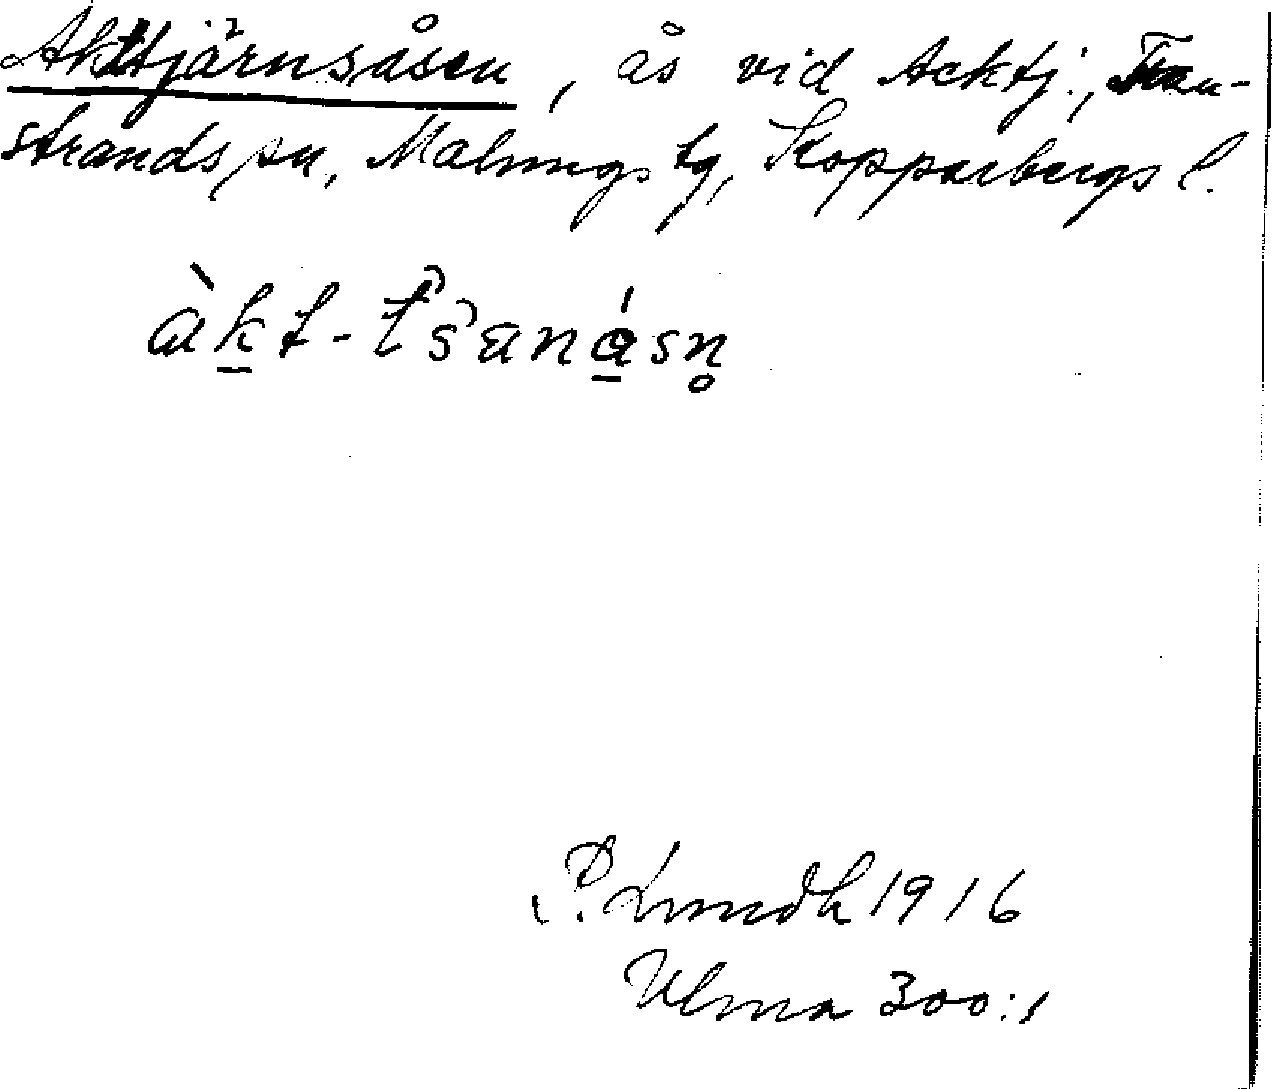 Akttjärnsåsen, ås vid Acktj:, Tran-
strands sn, Malungs tg, Kopparbergs l.
àk̲t-tšanás̲n̥
P. Lundh 1916
Ulma 300:1